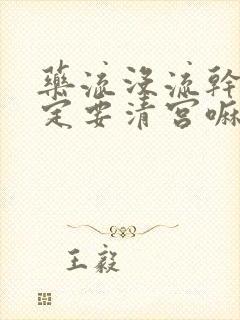 藥流沒流幹
定要清宮嘛
王毅